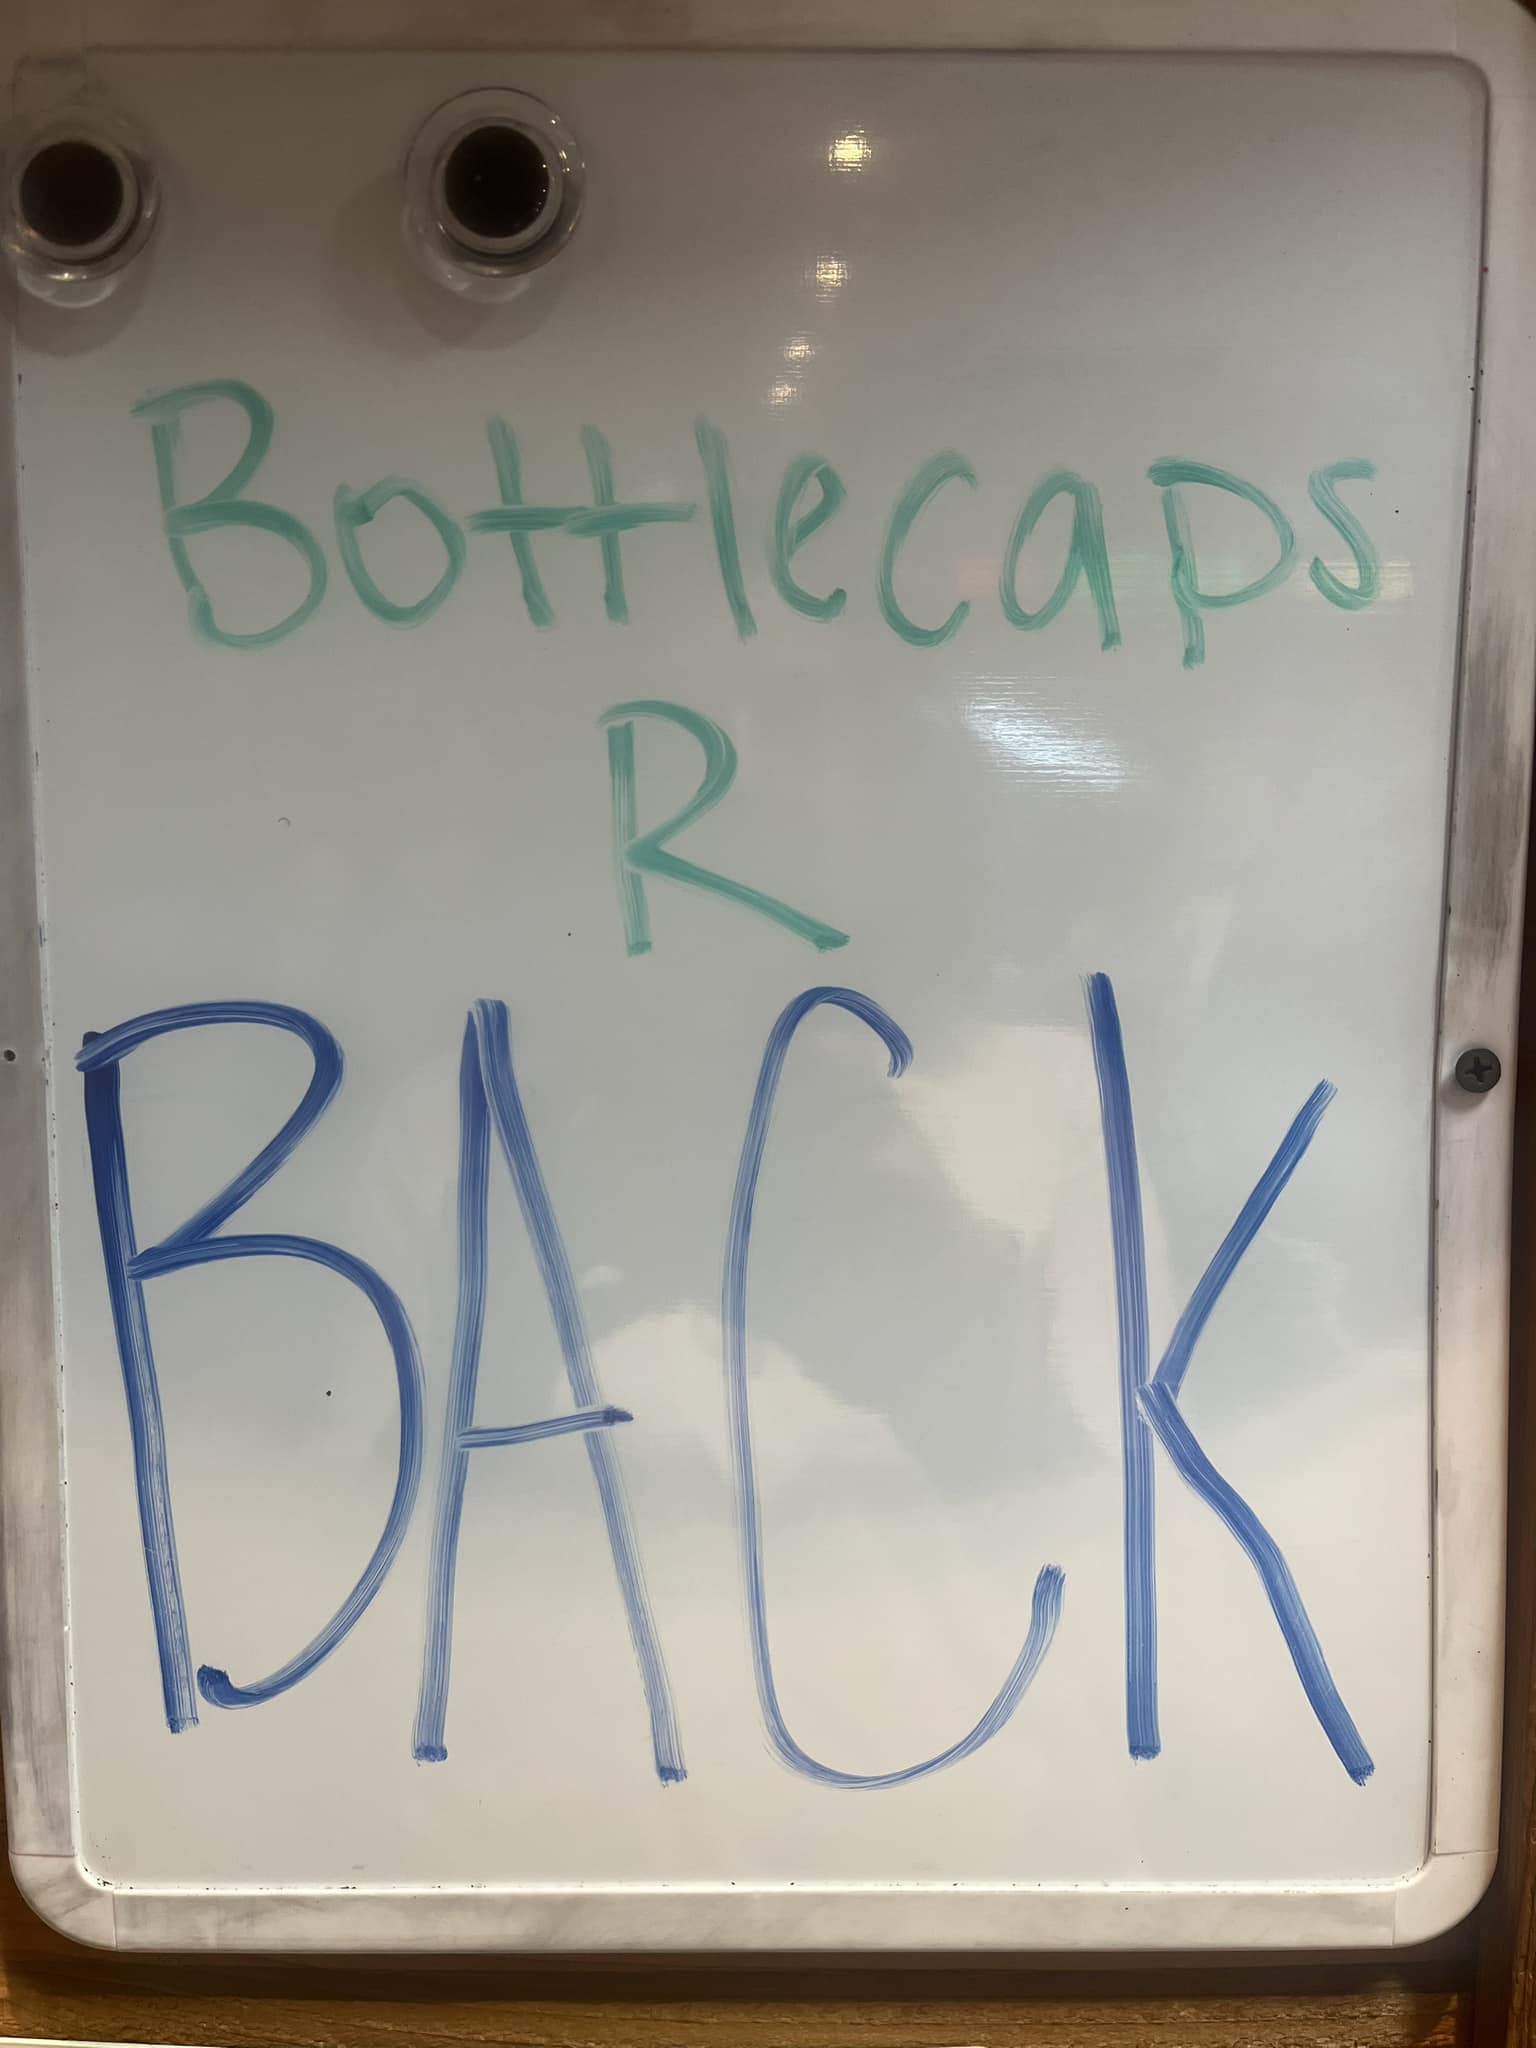 Bottlecaps
R
BACK